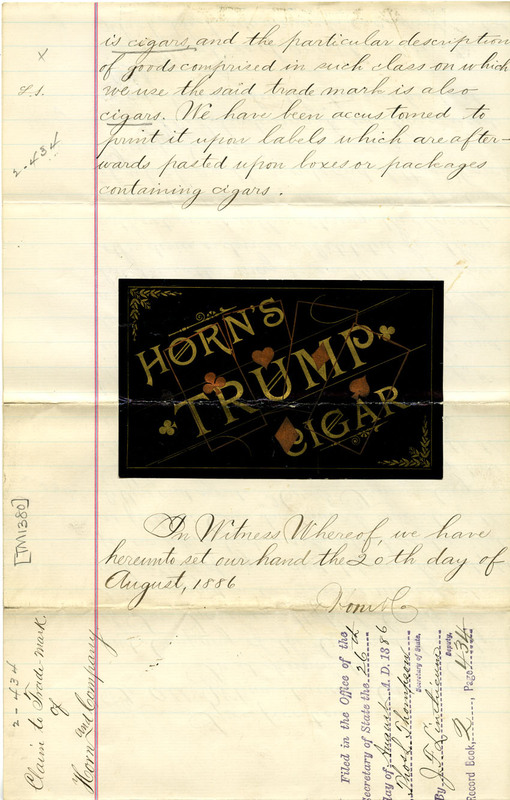 is cigars and the particular description
of goods comprised in such class on which
we use the said trade mark is also
cigars. We have been accustomed to
print it upon labels which are after-
wards pasted upon boxes or packages
containing cigars.
x
L.S.
2-434
HORN'S
TRUMP
CIGAR
In Witness Whereof, we have
hereunto set our hand the 20th day of
August, 1886
[TM1380]
2-434
Claim to Trade-mark
of
Horn and Company
Filed in the Office of the
Secretary of State the 26th
day of August A.D. 1886
Thos. S. Thompson
Secretary of State.
By J. F. Linthicum
Deputy.
Record Book, 2, Page 434